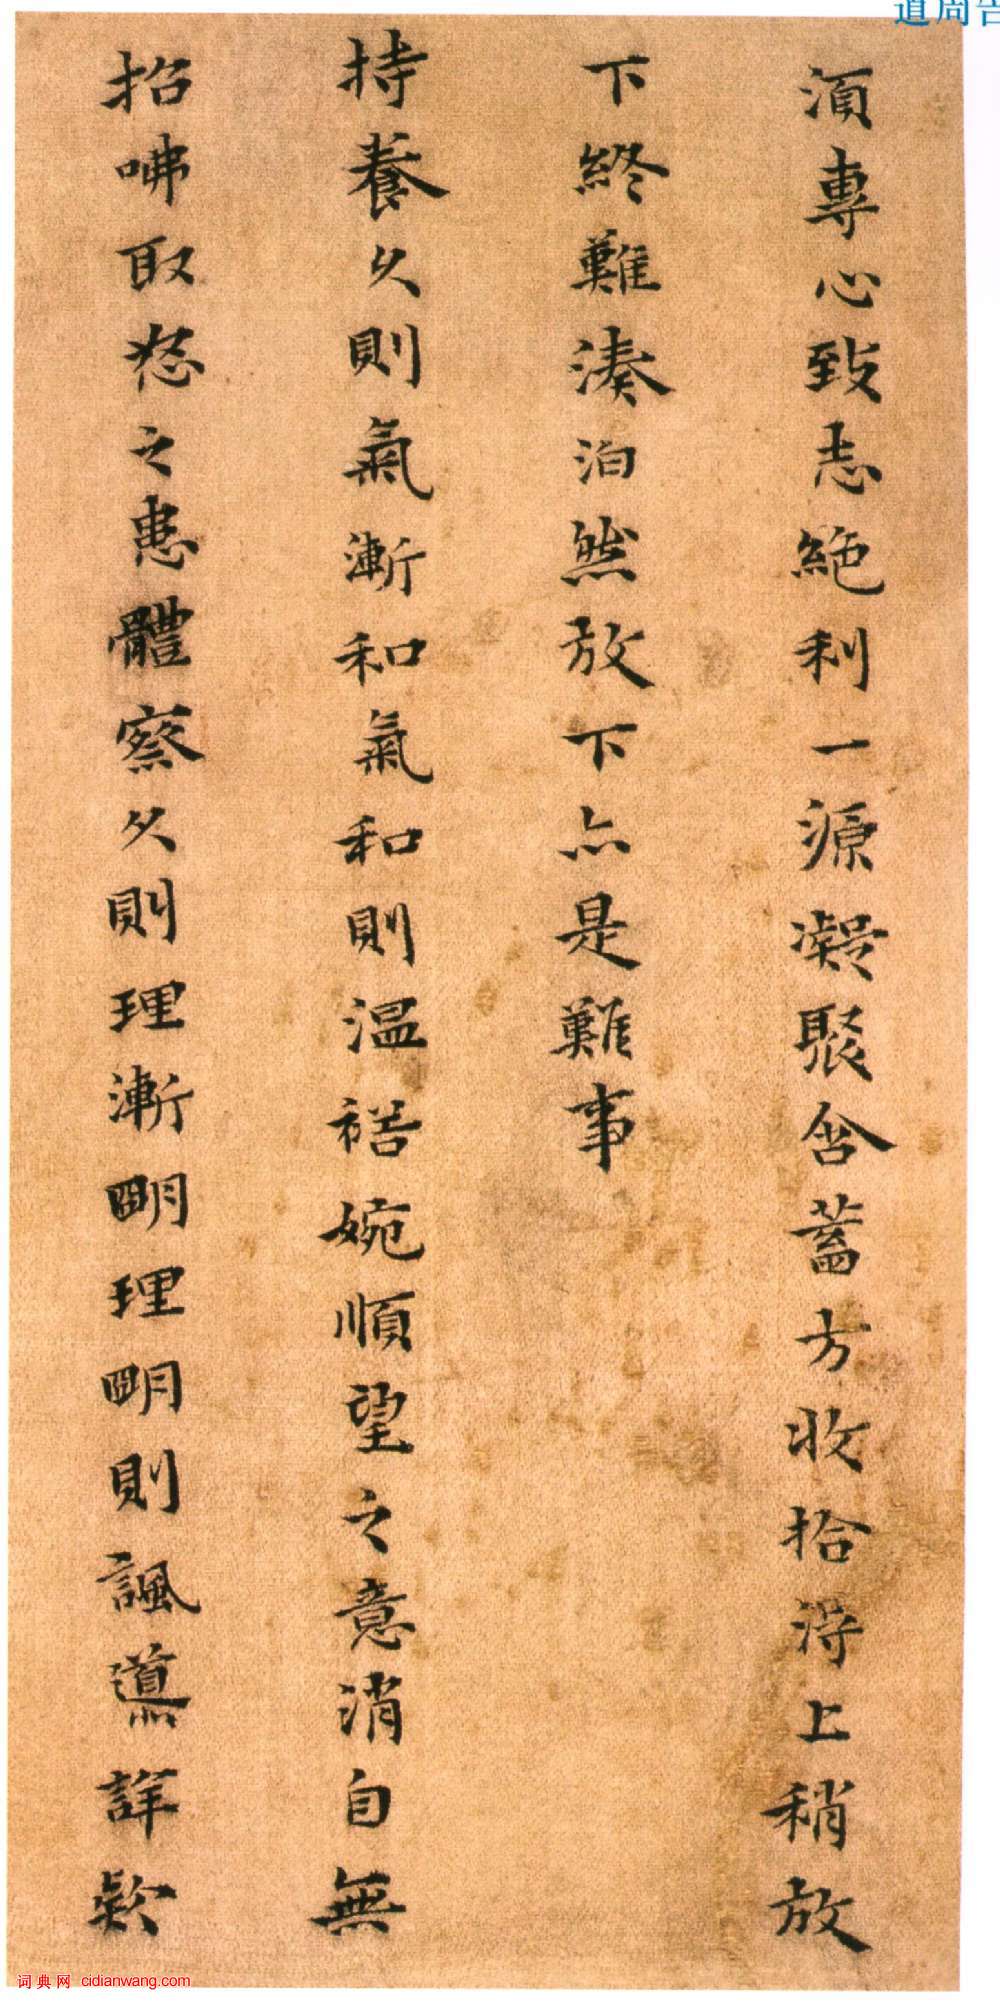 道周告
須專心致志絶利一源凝聚含蓄方收拾得上稍放
下終難湊泊然放下亦是難事
持養久則氣漸和氣和則溫裕婉順望之意消自無
招咈取怒之患體察久則理漸明理明則諷導詳款
词典网 cidianwang.com